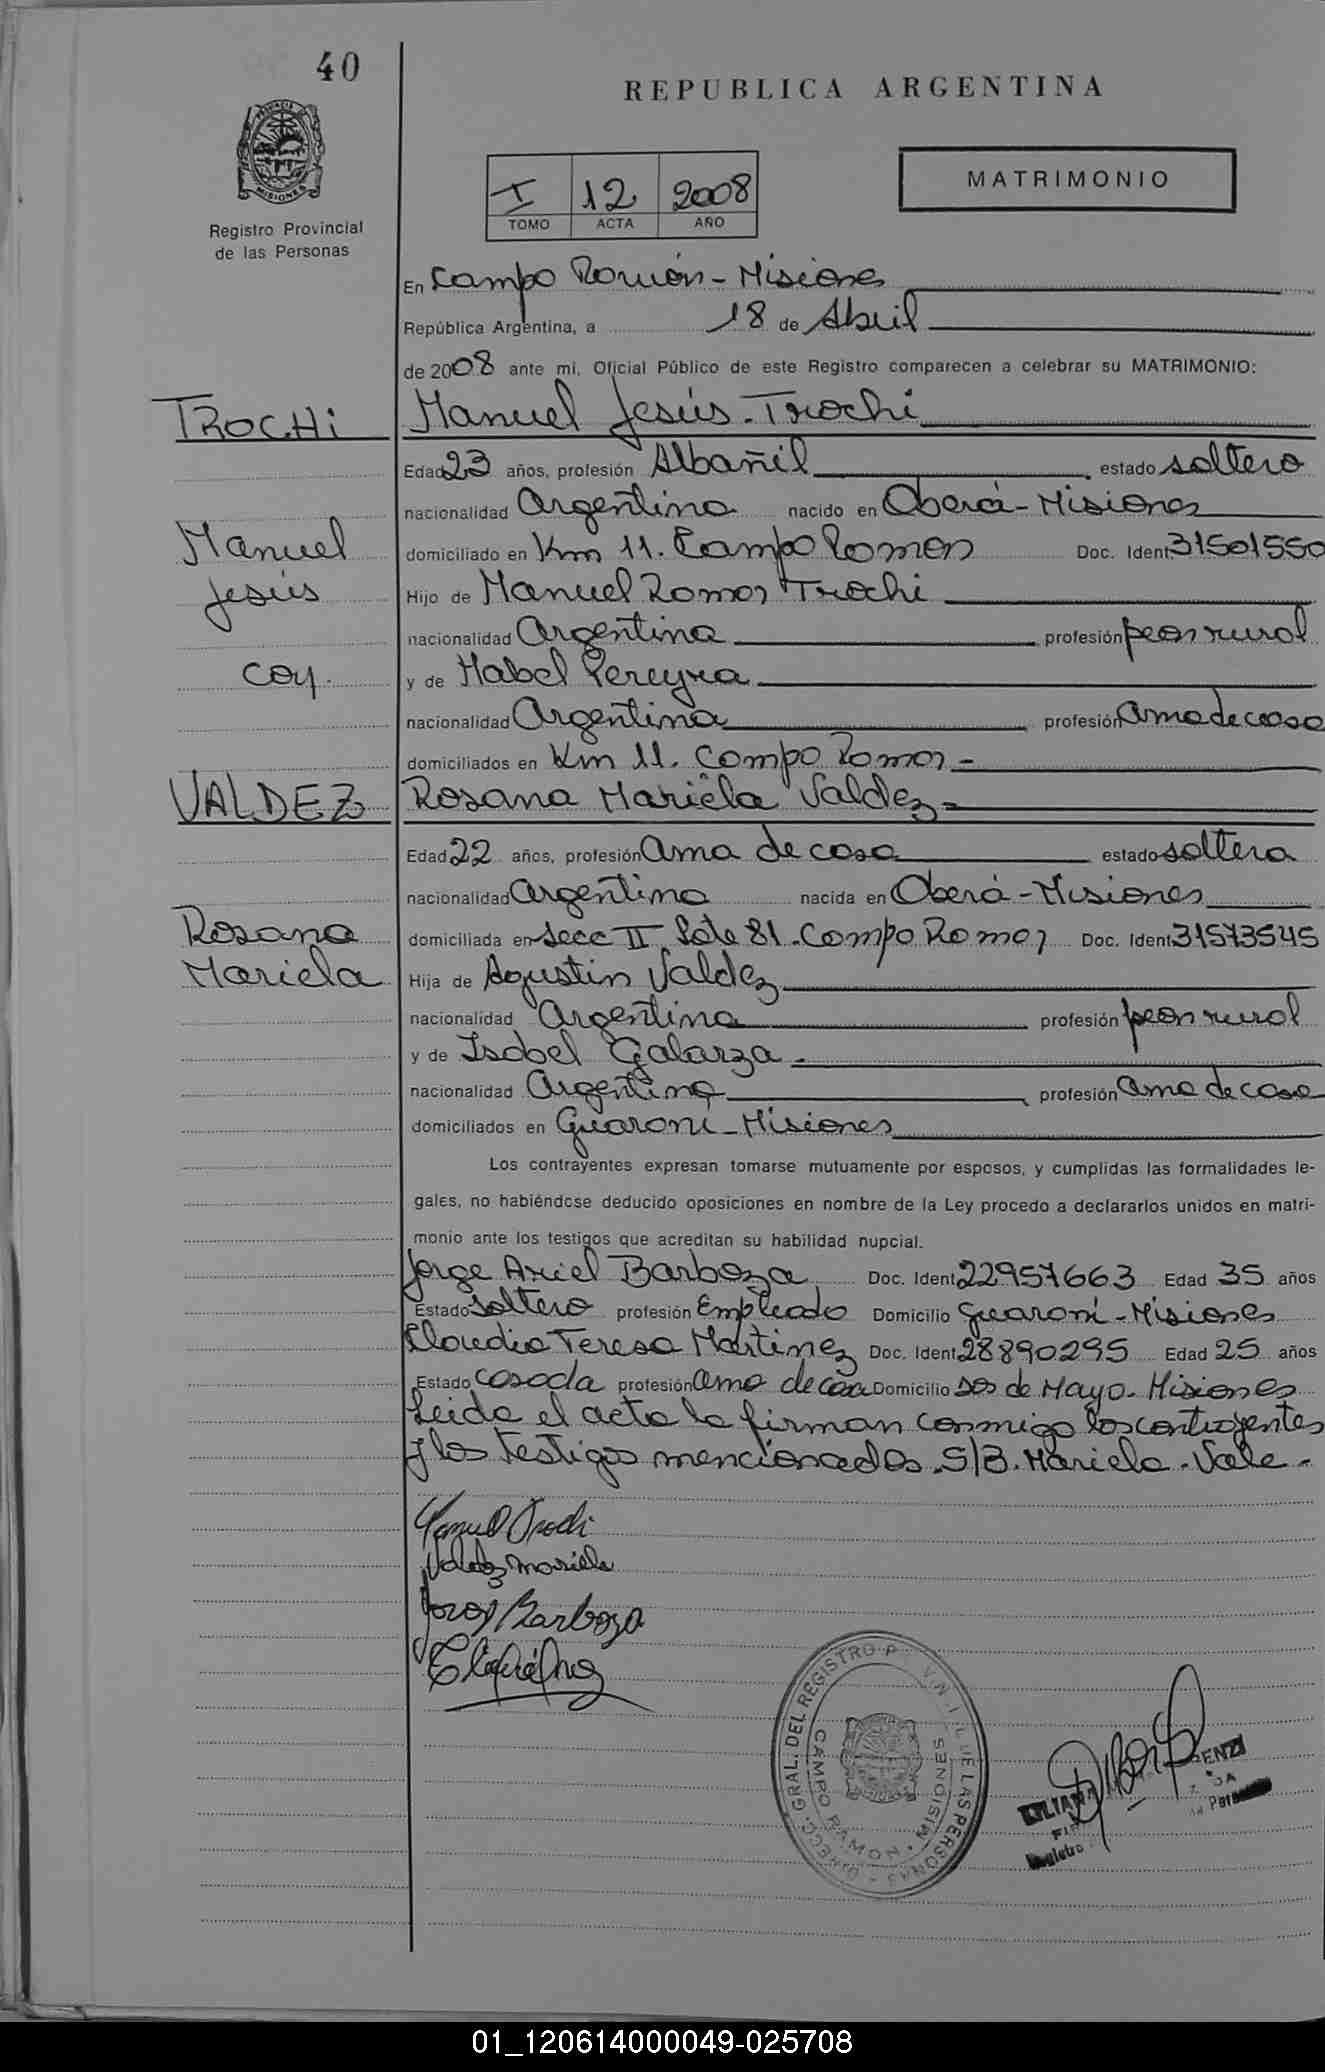 40
REPUBLICA ARGENTINA
PROVINCIA DE MISIONES
Registro Provincial
de las Personas
I 12 2008
TOMO ACTA AÑO
MATRIMONIO
En Campo Ramón - Misiones
República Argentina, a 18 de Abril
de 2008 ante mi, Oficial Público de este Registro comparecen a celebrar su MATRIMONIO:
TROCHI
Manuel Jesús Trochi
Edad 23 años, profesión Albañil estado soltero
nacionalidad Argentina nacido en Oberá - Misiones
Manuel
Jesús
domiciliado en Km 11. Campo Ramon Doc. Ident. 31501550
Hijo de Manuel Ramon Trochi
nacionalidad Argentina profesión peon rural
con
y de Mabel Pereyra
nacionalidad Argentina profesión Ama de casa
domiciliados en Km 11. Campo Ramon -
VALDEZ
Rosana Mariela Valdez -
Edad 22 años, profesión Ama de casa estado soltera
nacionalidad Argentina nacida en Oberá - Misiones
Rosana
Mariela
domiciliada en Secc II Lote 81. Campo Ramon Doc. Ident. 31573545
Hija de Agustin Valdez
nacionalidad Argentina profesión peon rural
y de Isabel Galarza -
nacionalidad Argentina profesión ama de casa
domiciliados en Guaraní - Misiones
Los contrayentes expresan tomarse mutuamente por esposos, y cumplidas las formalidades le-
gales, no habiéndose deducido oposiciones en nombre de la Ley procedo a declararlos unidos en matri-
monio ante los testigos que acreditan su habilidad nupcial.
Jorge Ariel Barboza Doc. Ident. 22957663 Edad 35 años
Estado soltero profesión Empleado Domicilio Guaraní - Misiones
Claudia Teresa Martinez Doc. Ident. 28890295 Edad 25 años
Estado casada profesión ama de casa Domicilio Dos de Mayo - Misiones
Leida el acta la firman conmigo los contrayentes
y los testigos mencionados. S/B. Mariela - Vale -
Manuel Trochi
Valdez Mariela
Jorge Barboza
DIRECC. GRAL. DEL REGISTRO PROVINCIAL DE LAS PERSONAS
CAMPO RAMON - MISIONES
LILIANA
01_120614000049-025708